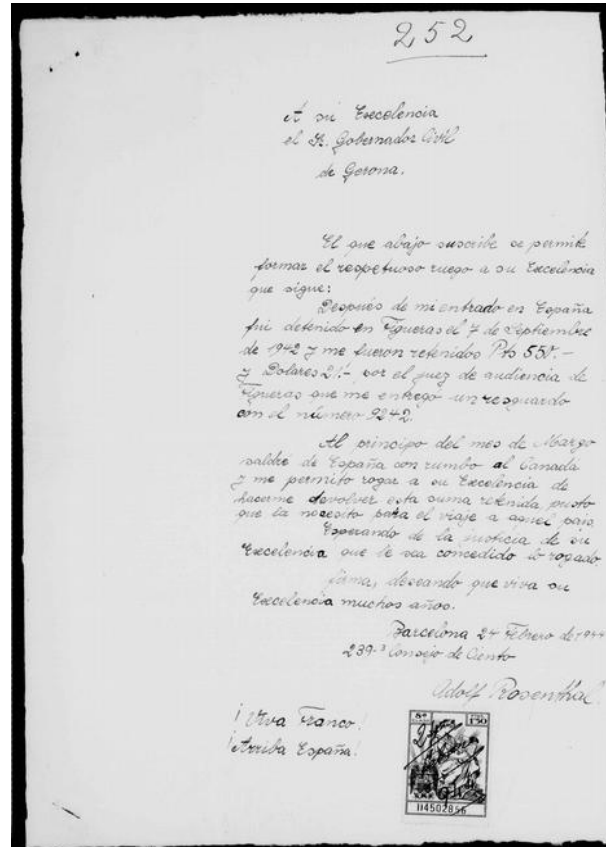 252
A su Excelencia
el Sr. Gobernador Civil
de Gerona.
El que abajo suscribe se permite
formar el respetuoso ruego a su Excelencia
que sigue:
Después de mi entrado en España
fui detenido en Figueras el 7 de Septiembre
de 1942 y me fueron retenidos Pts 550.-
y Dolares 21.- por el juez de audiencia de
Figueras que me entregó un resguardo
con el número 9242.
Al principo del mes de Marzo
saldré de España con rumbo al Canadá
y me permito rogar a su Excelencia de
hacerme devolver esta suma retenida, puesto
que la necesito para el viaje a aquel pais.
Esperando de la justicia de su
Excelencia que le sea concedido lo rogado
firma, deseando que viva su
Excelencia muchos años.
Barcelona 24 Febrero de 1944
239.³ Consejo de Ciento
Adolf Rosenthal.
¡Viva Franco!
¡Arriba España!
8ª
1'50